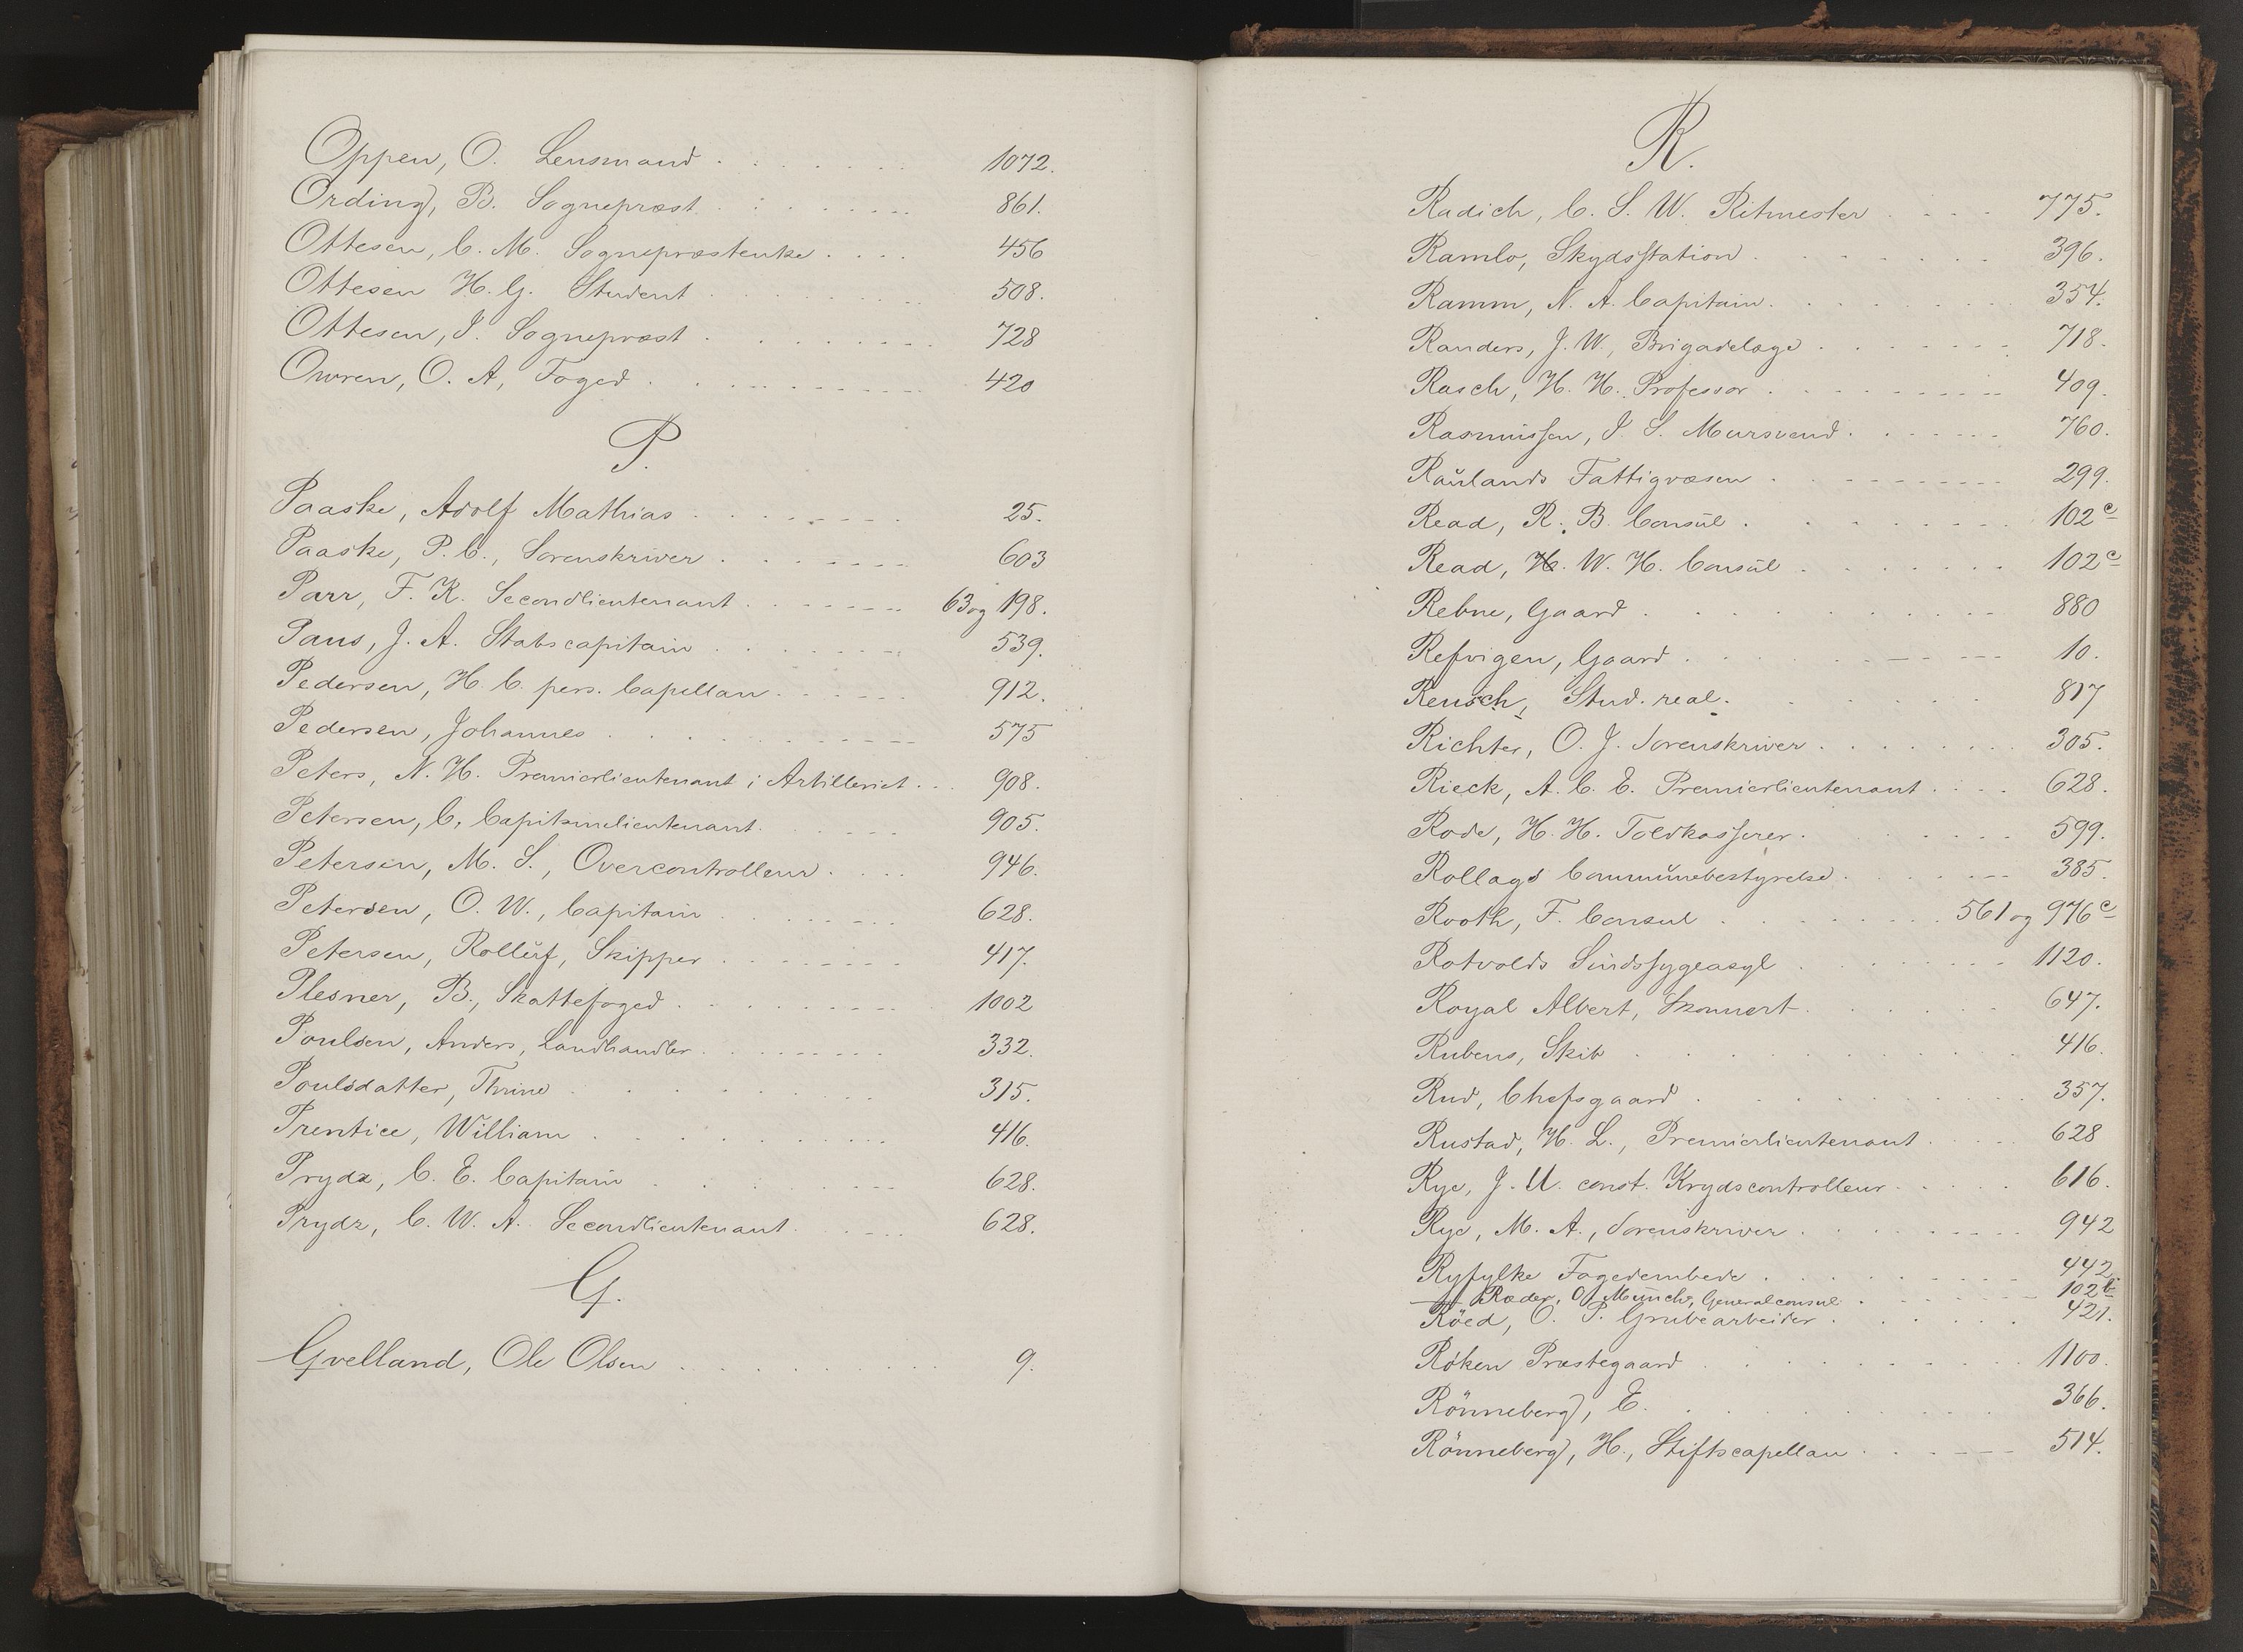 Oppen, O. Lensmand 1072.
Ording, B. Sognepræst 861.
Ottesen, C. M. Sognepræstenke 456
Ottesen H. G. Student 508.
Ottesen, J. Sognepræst 728
Owren, O. A, Foged 420
P.
Paaske, Adolf Mathias 25.
Paaske, P. C., Sorenskriver 603
Parr, F. K. Secondlieutenant 63 og 198.
Paus, J. A. Stabscapitain 539.
Pedersen, H. C. pers. Capellan 912.
Pedersen, Johannes 575
Peters, N. H. Premierlieutenant i Artilleriet 908.
Petersen, C. Capitainelieutenant 905.
Petersen, M. S., Overcontrolleur 946.
Petersen, O. W., Capitain 628.
Petersen, Rolluf, Skipper 417.
Plesner, B., Skattefoged 1002
Poulsen, Anders, Landhandler 332.
Poulsdatter, Thrine 315.
Prentice, William 416.
Prydz, C. E. Capitain 628.
Prydz, C. W. A. Secondlieutenant 628.
Q.
Qvelland, Ole Olsen 9.
R.
Radich, C. S. W. Ritmester 775.
Ramlo, Skydsstation 396.
Ramm, N. A. Capitain 354.
Randers, J. W., Brigadelæge 718.
Rasch, H. H. Professor 409.
Rasmussen, J. S. Mursvend 760.
Raulands Fattigvæsen 299.
Read, R. B. Consul 102 c
Read, W. H. Consul 102 c
Rebne, Gaard 880
Refvigen, Gaard 10.
Reusch, Stud. real. 817
Richter, O. J. Sorenskriver 305.
Rieck, A. C. E. Premierlieutenant 628.
Rode, H. H. Toldkasserer 599.
Rollags Communebestyrelse 385.
Rooth, F. Consul 561 og 976 c
Rotvolds Sindssygeasyl 1120.
Royal Albert, Skonnert 647.
Rubens, Skib 416.
Rud, Chefsgaard 357.
Rustad, H. L., Premierlieutenant 628
Rye, J. U. const. Krydscontrolleur 616.
Rye, M. A., Sorenskriver 942
Ryfylke Fogedembede 442
Ræder, O. Munch, Generalconsul 102 b
Röed, O. P. Grubearbeider 421.
Röken Præstegaard 1100.
Rönneberg, E. 366.
Rönneberg, H., Stiftscapellan 514.